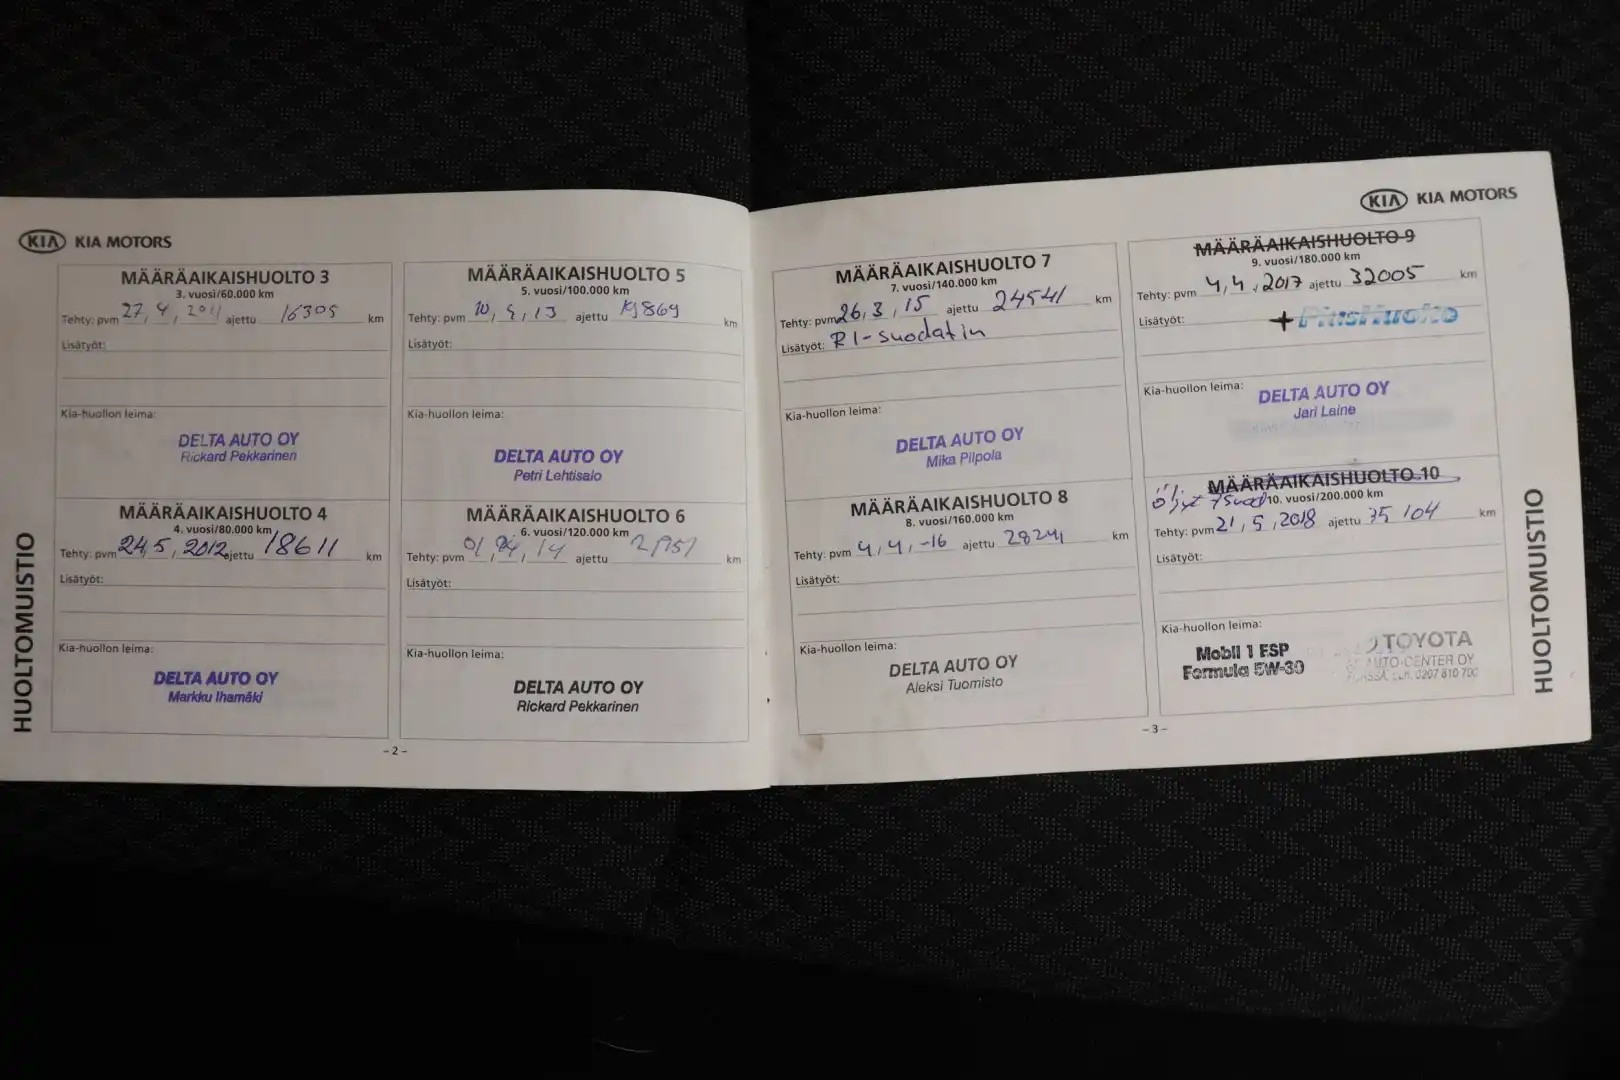 KIA KIA MOTORS
MÄÄRÄAIKAISHUOLTO 3
3. vuosi/60.000 km
Tehty: pvm 27, 4, 2011 ajettu 16305 km
Lisätyöt:
Kia-huollon leima:
DELTA AUTO OY
Rickard Pekkarinen
MÄÄRÄAIKAISHUOLTO 4
4. vuosi/80.000 km
Tehty: pvm 24, 5, 2012 ajettu 18611 km
Lisätyöt:
Kia-huollon leima:
DELTA AUTO OY
Markku Ihamäki
MÄÄRÄAIKAISHUOLTO 5
5. vuosi/100.000 km
Tehty: pvm 10, 4, 13 ajettu 19869 km
Lisätyöt:
Kia-huollon leima:
DELTA AUTO OY
Petri Lehtisalo
MÄÄRÄAIKAISHUOLTO 6
6. vuosi/120.000 km
Tehty: pvm 01, 04, 14 ajettu km
Lisätyöt:
Kia-huollon leima:
DELTA AUTO OY
Rickard Pekkarinen
HUOLTOMUISTIO
– 2 –
KIA KIA MOTORS
MÄÄRÄAIKAISHUOLTO 7
7. vuosi/140.000 km
Tehty: pvm 26, 3, 15 ajettu 24541 km
Lisätyöt: RI-suodatin
Kia-huollon leima:
DELTA AUTO OY
Mika Pilpola
MÄÄRÄAIKAISHUOLTO 8
8. vuosi/160.000 km
Tehty: pvm 4, 4, -16 ajettu 28241 km
Lisätyöt:
Kia-huollon leima:
DELTA AUTO OY
Aleksi Tuomisto
MÄÄRÄAIKAISHUOLTO 9
9. vuosi/180.000 km
Tehty: pvm 4, 4, 2017 ajettu 32005 km
Lisätyöt: + PlusHuolto
Kia-huollon leima:
DELTA AUTO OY
Jari Laine
MÄÄRÄAIKAISHUOLTO 10
10. vuosi/200.000 km
Tehty: pvm 21, 5, 2018 ajettu 35104 km
Lisätyöt:
Kia-huollon leima:
Mobil 1 ESP
Formula 5W-30
TOYOTA
AUTO-CENTER OY
0207 810 700
HUOLTOMUISTIO
– 3 –